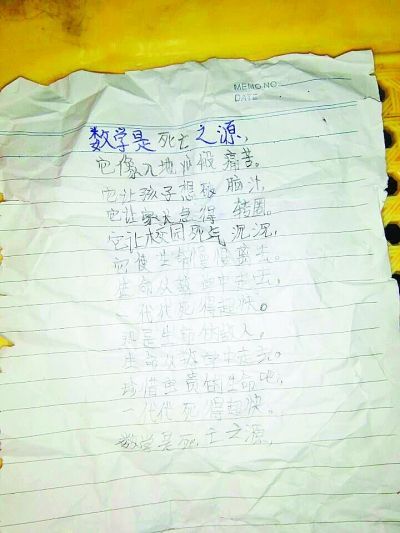 MEMO NO.
DATE
数学是死亡之源,
它像入地狱般痛苦。
它让孩子想破脑汁,
它让家长急得转圈。
它让校园死气沉沉,
它使生命慢慢离去。
生命从数学中走去,
一代代死得超快。
那是生命的敌人,
生命从数学中走完。
珍惜宝贵的生命吧,
一代代死得超快。
数学是死亡之源,